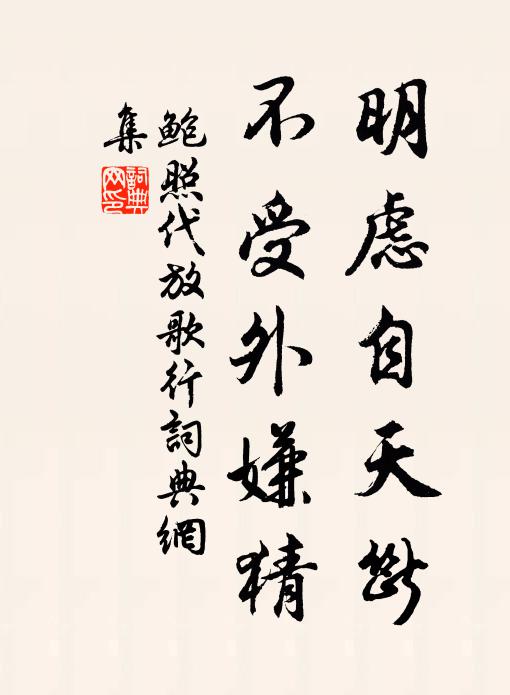 明慮自天斷
不受外嫌猜
鮑照代放歌行詞典網
集
詞典网印